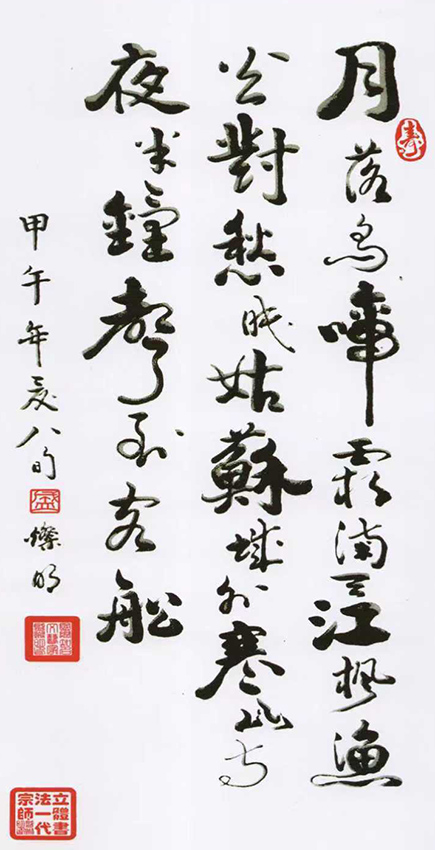 壽
月落烏啼霜滿江楓漁
火對愁眠姑蘇城外寒山寺
夜半鐘聲到客船
甲午年夏八旬盛燦明
立體書
法一代
宗師